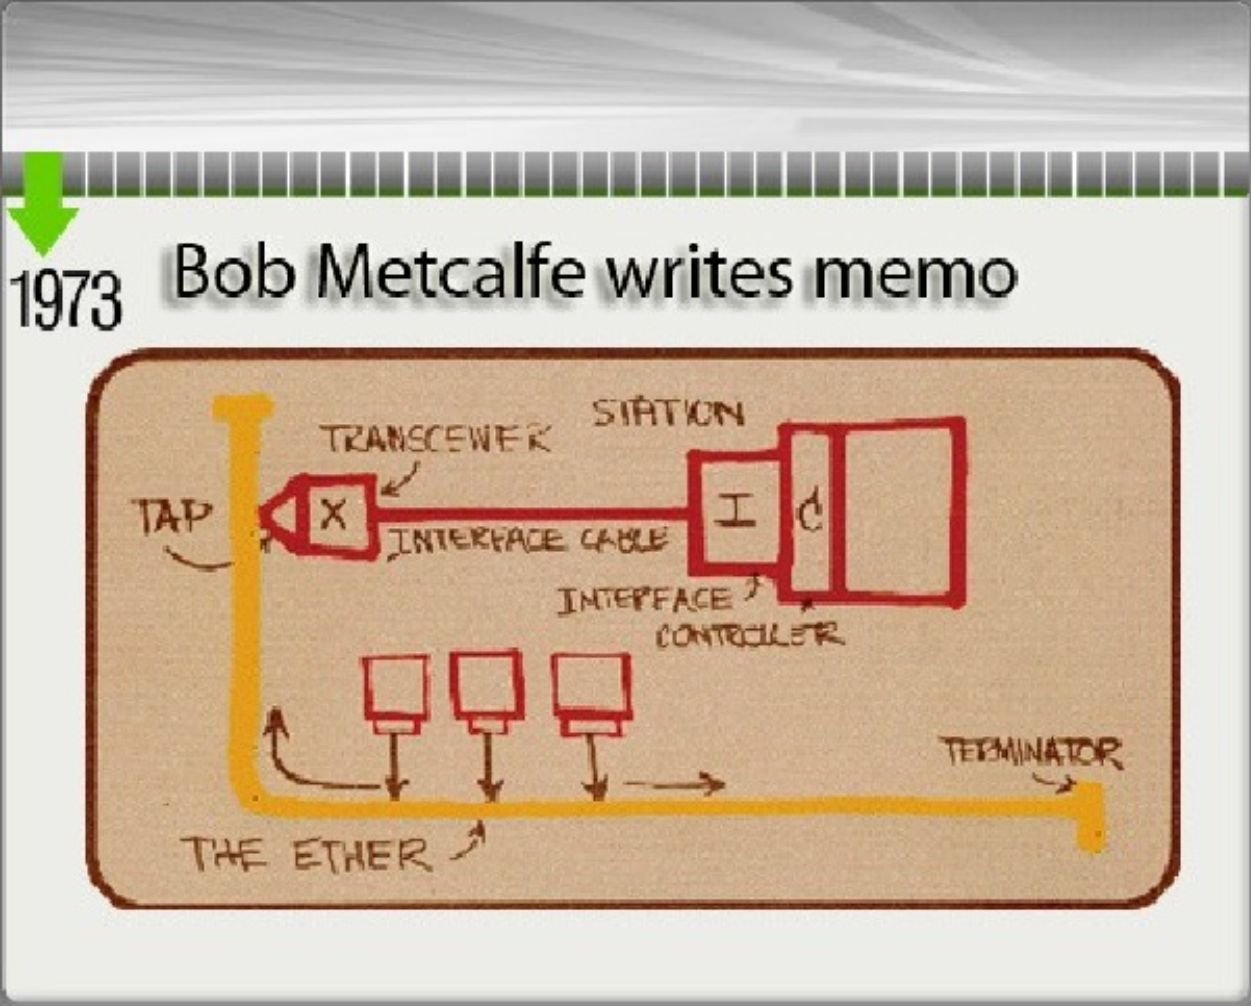 1973
Bob Metcalfe writes memo
STATION
TRANSCEIVER
TAP
X
I
C
INTERFACE CABLE
INTERFACE
CONTROLLER
TERMINATOR
THE ETHER